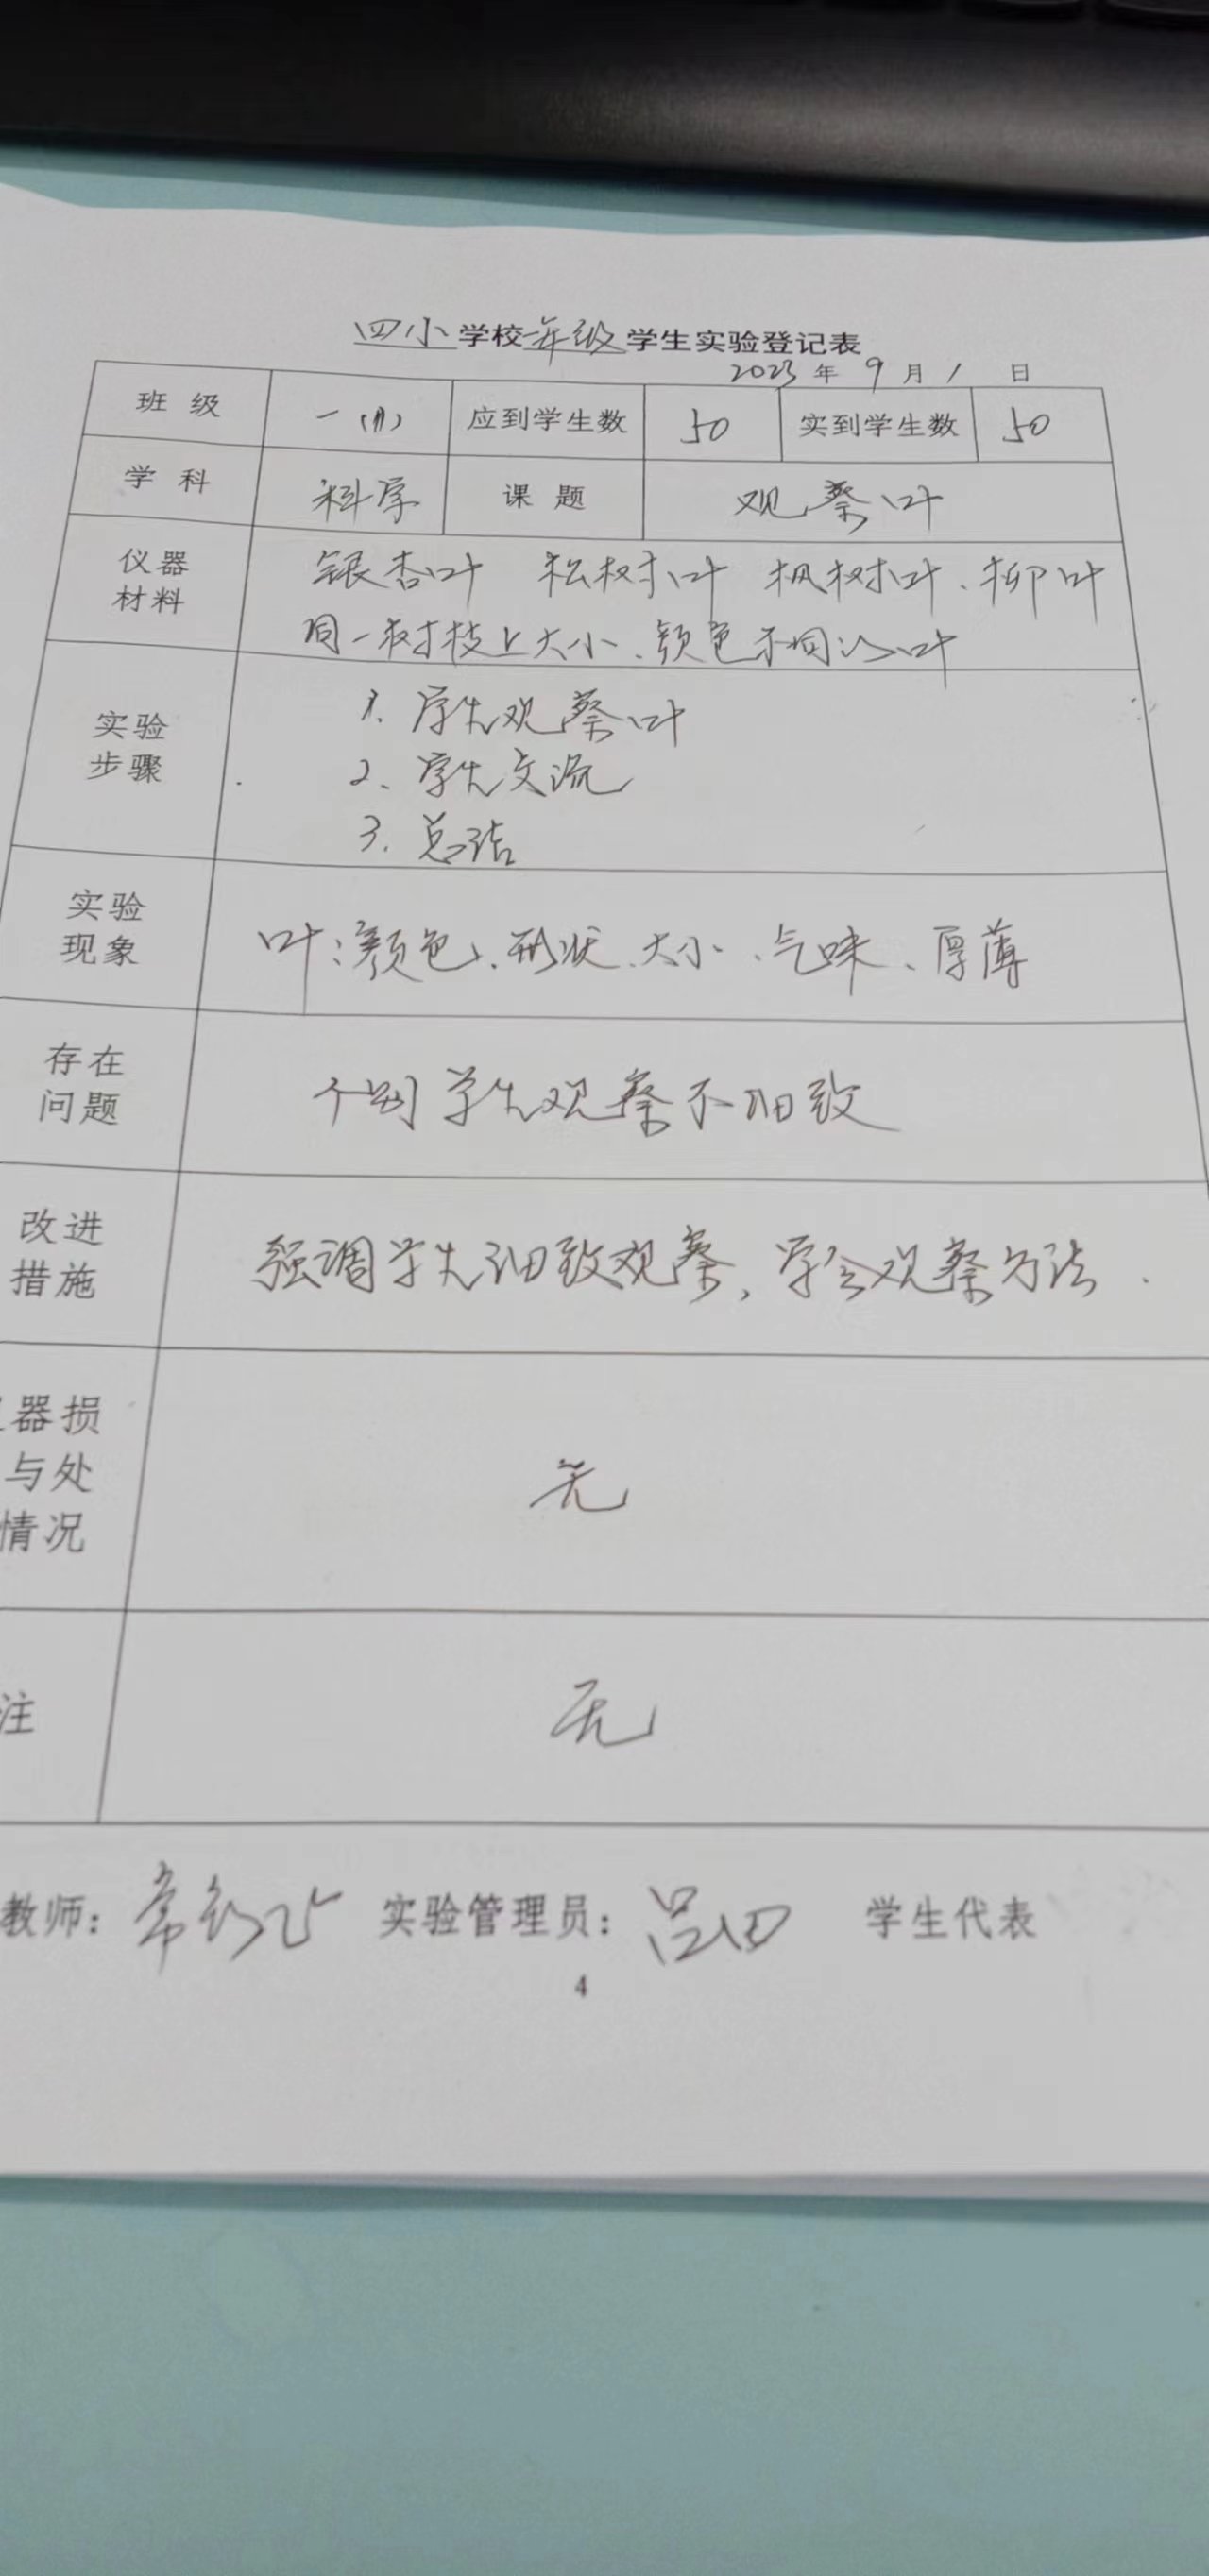 四小学校一年级学生实验登记表
2023年9月1日
班级 一 应到学生数 50 实到学生数 50
学科 科学 课题 观察叶
仪器
材料
银杏叶 松树叶 枫树叶、柳叶
同一树枝上大小、颜色不同的叶
实验
步骤
1. 学生观察叶
2、学生交流
3. 总结
实验
现象
叶:颜色、形状、大小、气味、厚薄
存在
问题
个别学生观察不细致
改进
措施
强调学生细致观察,学会观察方法.
器损
与处
情况
无
注
无
教师: 常 实验管理员: 吕 学生代表
4